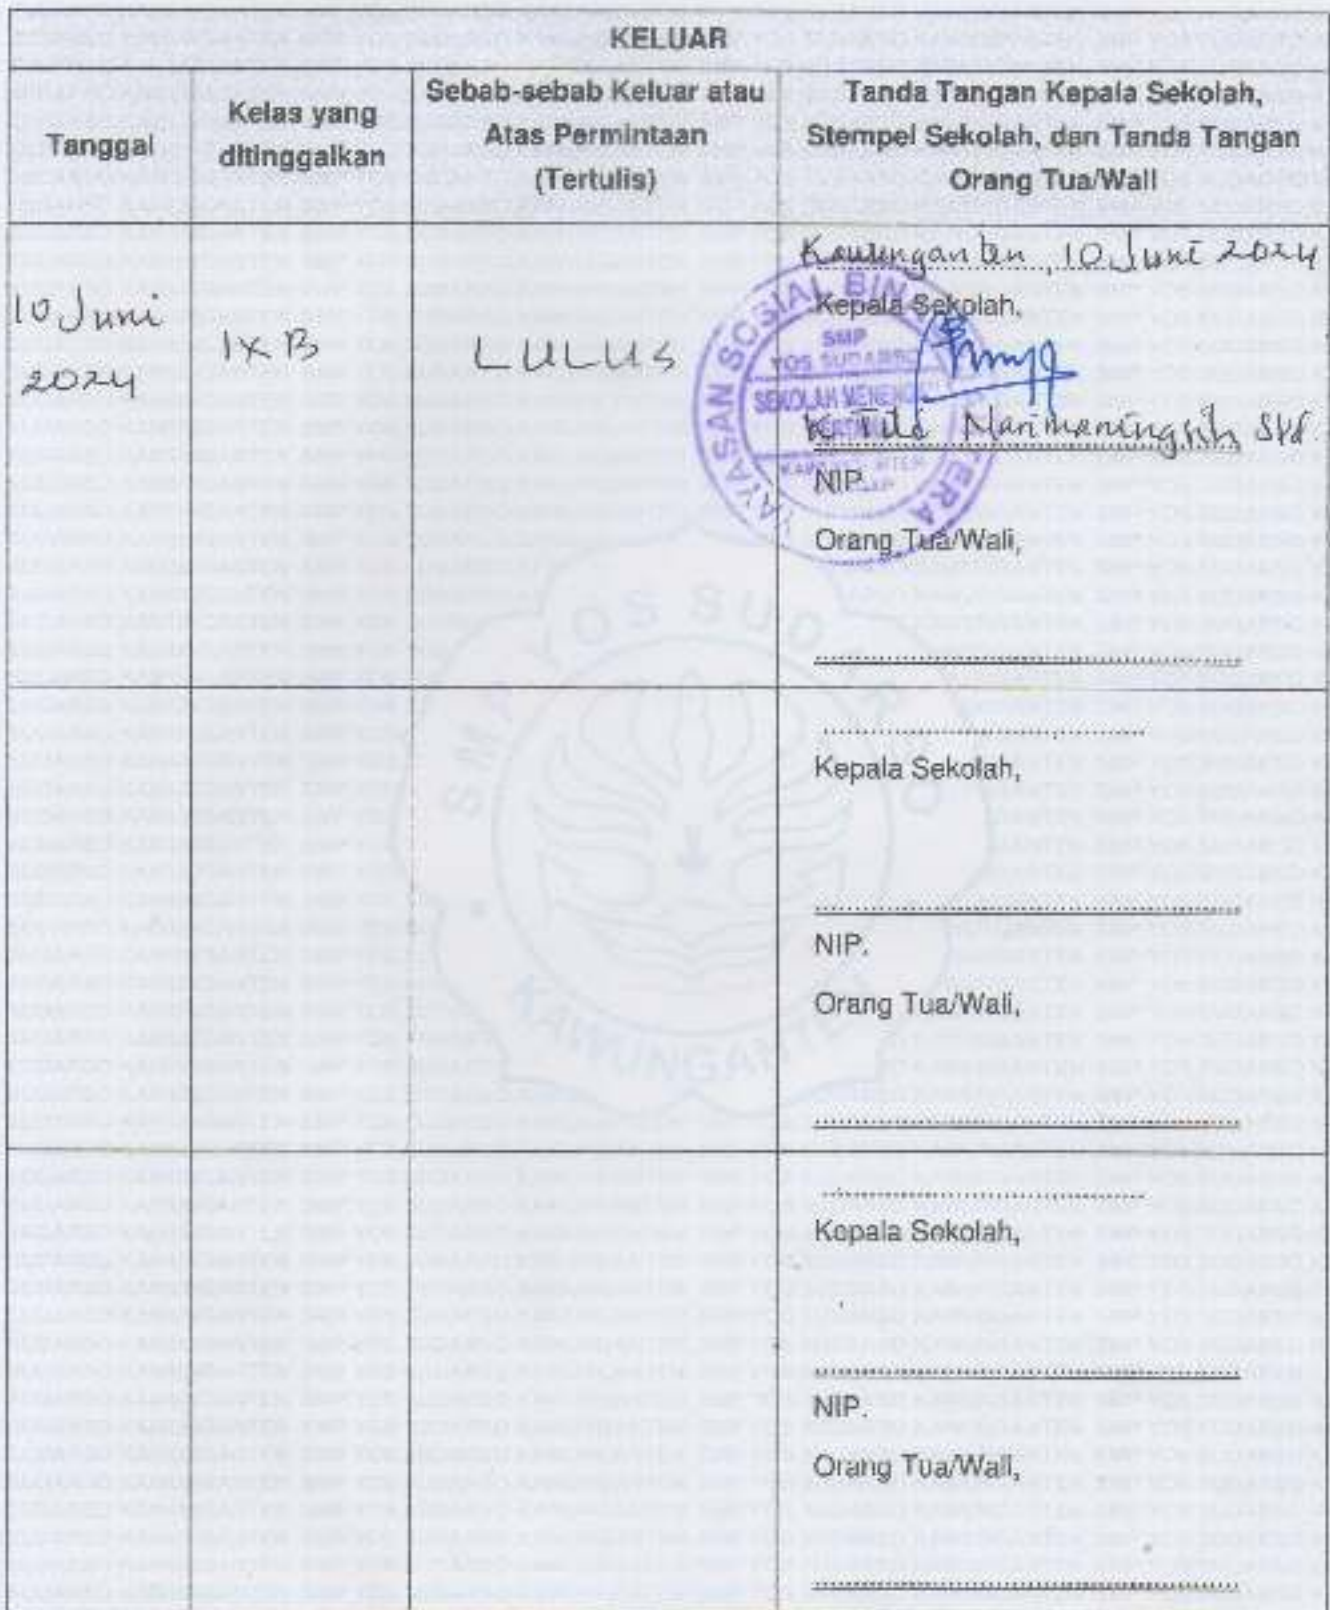 KELUAR
Tanggal
Kelas yang
ditinggalkan
Sebab-sebab Keluar atau
Atas Permintaan
(Tertulis)
Tanda Tangan Kepala Sekolah,
Stempel Sekolah, dan Tanda Tangan
Orang Tua/Wali
10 Juni
2024
IX B
LULUS
Kawunganten, 10 Juni 2024
Kepala Sekolah,
YAYASAN SOSIAL BINA
SMP
YOS SUDARSO
SEKOLAH MENENGAH
Marimaningsih, SPd.
NIP.
Orang Tua/Wali,
Kepala Sekolah,
NIP.
Orang Tua/Wali,
Kepala Sekolah,
NIP.
Orang Tua/Wali,
SMP YOS SUDARSO
KAWUNGANTEN